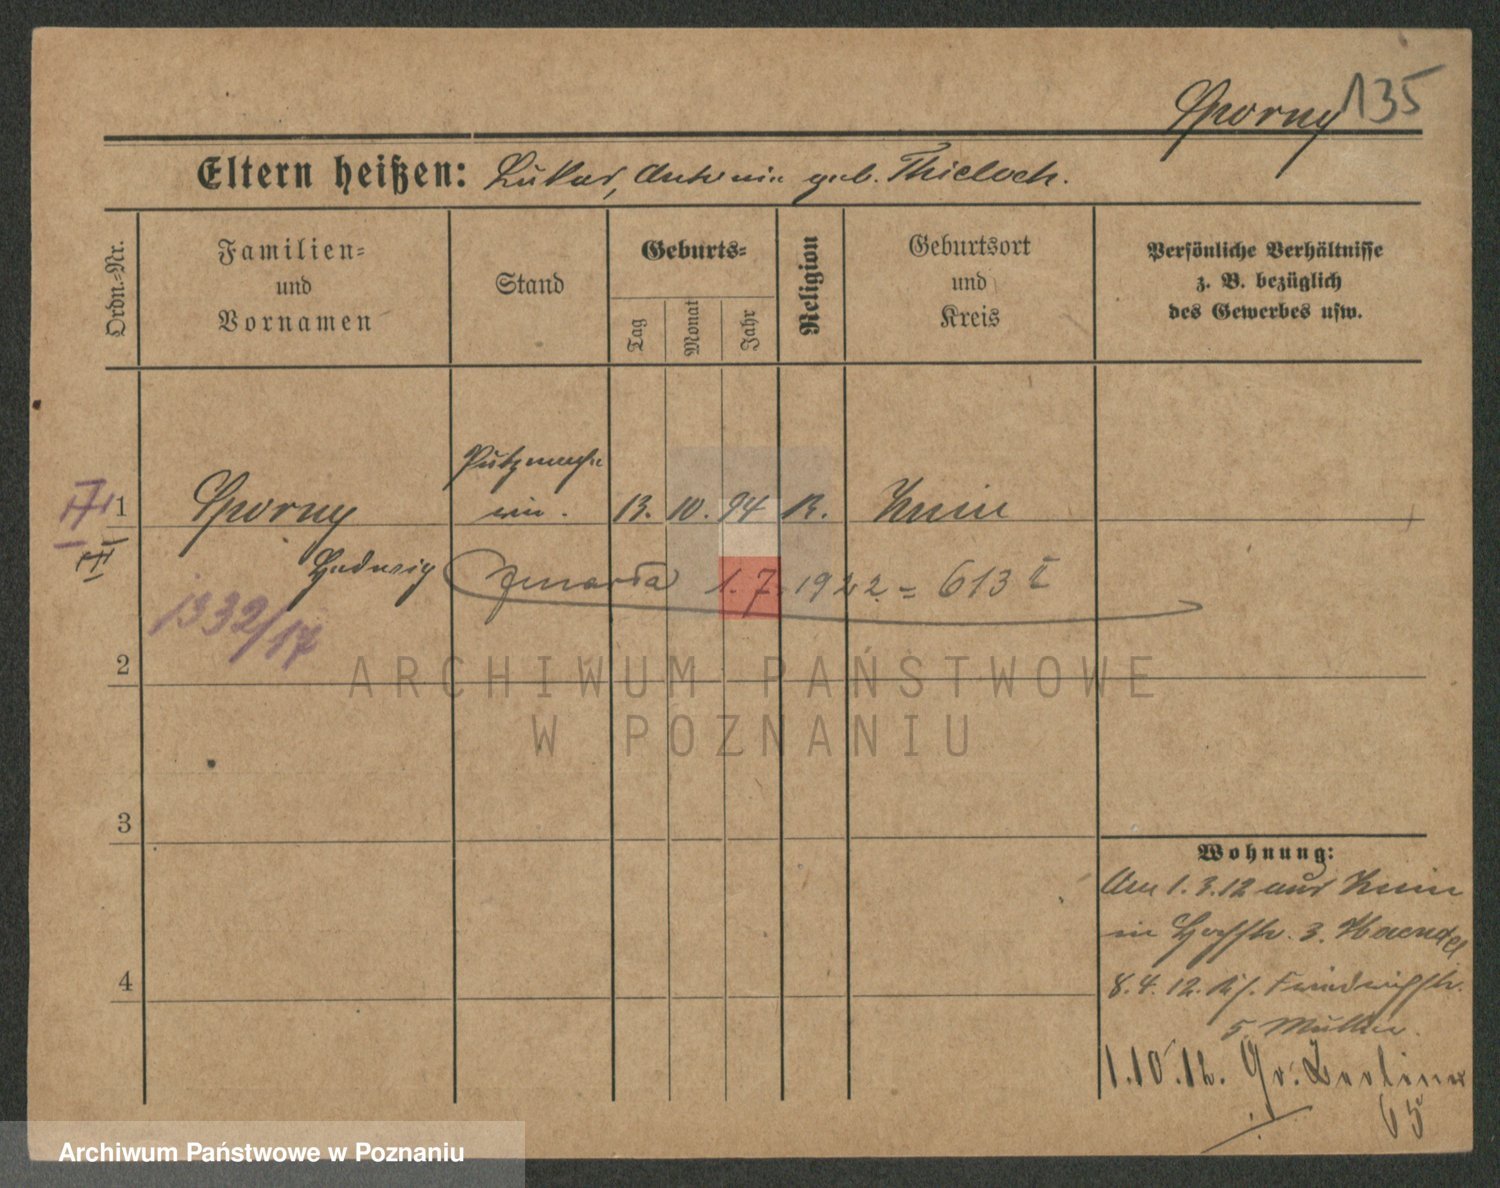 Sporny 135
Eltern heißen: Lukas, Antonie geb. Thieloch.
Ordn.-Nr.
Familien-
und
Vornamen
Stand
Geburts-
Tag
Monat
Jahr
Religion
Geburtsort
und
Kreis
Persönliche Verhältnisse
z. B. bezüglich
des Gewerbes usw.
Putzmache
rin.
1 Sporny 13. 10. 94 R. Znin
Hedwig
zmarła 1.7.1922 = 613 I
1332/17
2
ARCHIWUM PAŃSTWOWE
W POZNANIU
3
4
Wohnung:
Am 1.3.12 aus Znin
in 3.
8.4.12.
5 Müller.
1.10.12. Gr. Berliner
65
Archiwum Państwowe w Poznaniu